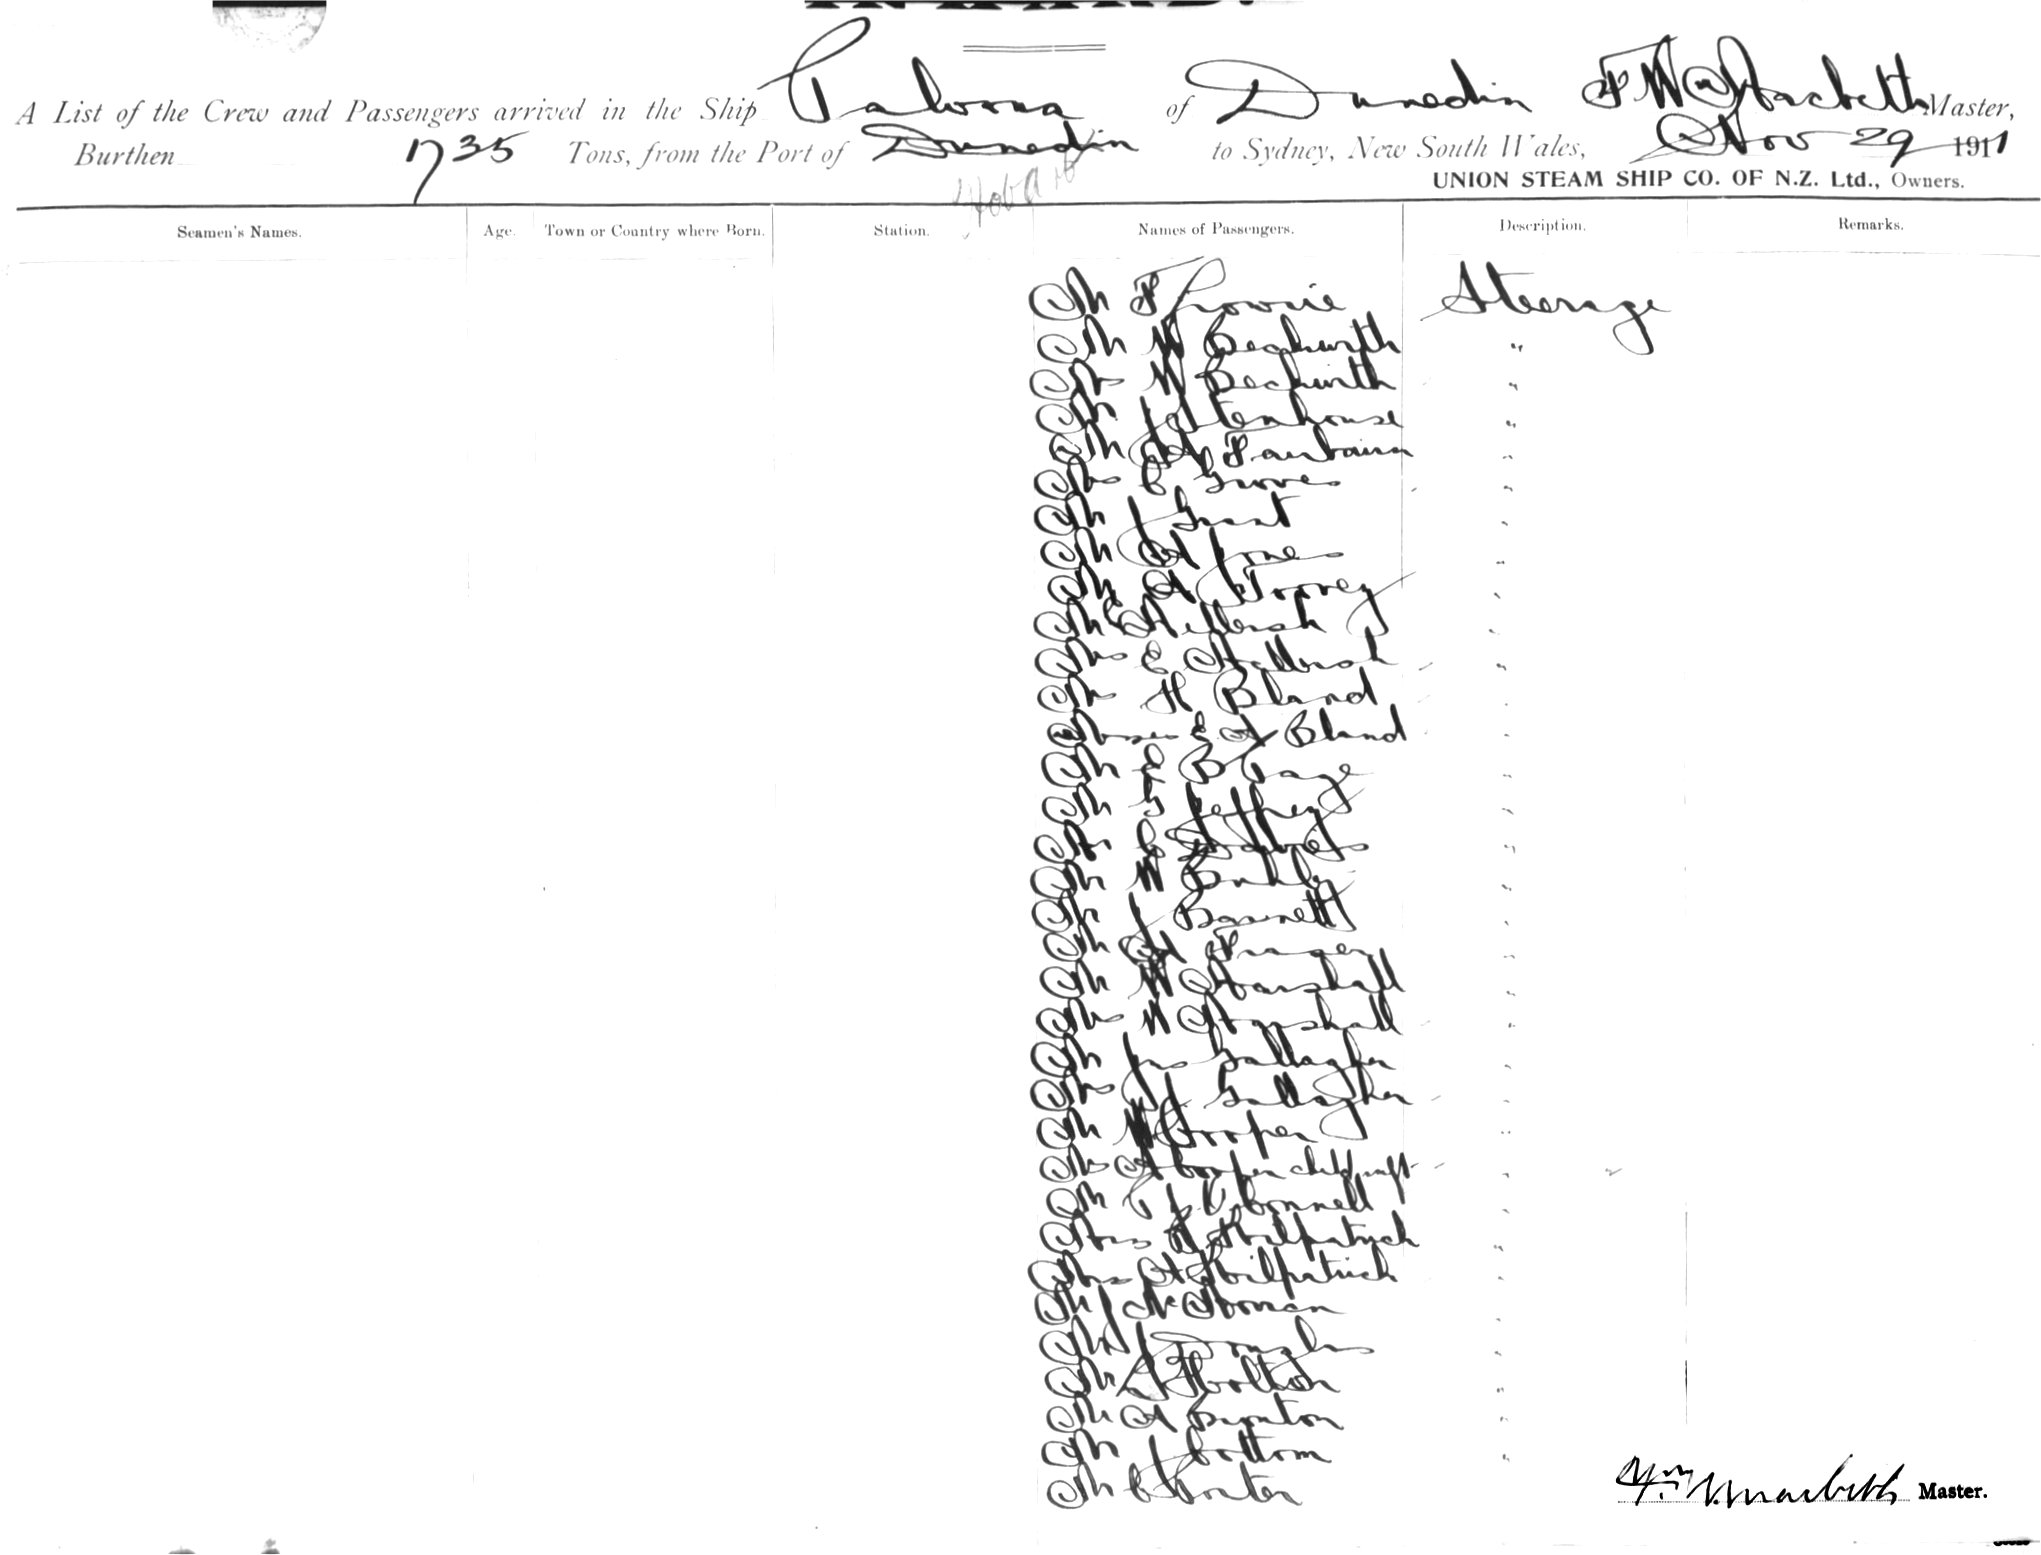 INWARD.
A List of the Crew and Passengers arrived in the Ship Paloona of Dunedin Macbeth Master,
Burthen 1735 Tons, from the Port of Dunedin to Sydney, New South Wales, Nov 29 1911
Hobart
UNION STEAM SHIP CO. OF N.Z. Ltd., Owners.
Seamen's Names. Age. Town or Country where Born. Station. Names of Passengers. Description. Remarks.
Mr F Steerage
Mr W Beckwith "
Mrs W Beckwith "
Mr J Stenhouse "
Mr Fairbairn "
Mrs C Groves "
Mr J Grant "
Mr A Jones "
Mr A Torrey "
Mr E "
Mrs E "
Mrs H Bland "
Misses E A Bland "
Mr E B Page "
Mr G Jeffrey "
C "
Mr W "
Mr J Bassnett "
Mr A Fraser "
Mr W Marshall "
Mrs W Marshall "
Mr Jno Gallagher "
Mrs J Gallagher "
Mr W Cooper "
Mrs A Cooper child inft "
Mr P J O'Connell "
Kilpatrick "
Kilpatrick "
Mr J "
Mr J Douglas "
Mr Holton "
Mr A Brunton "
Mr J Cottom "
Mr C Porter
Wm Macbeth Master.